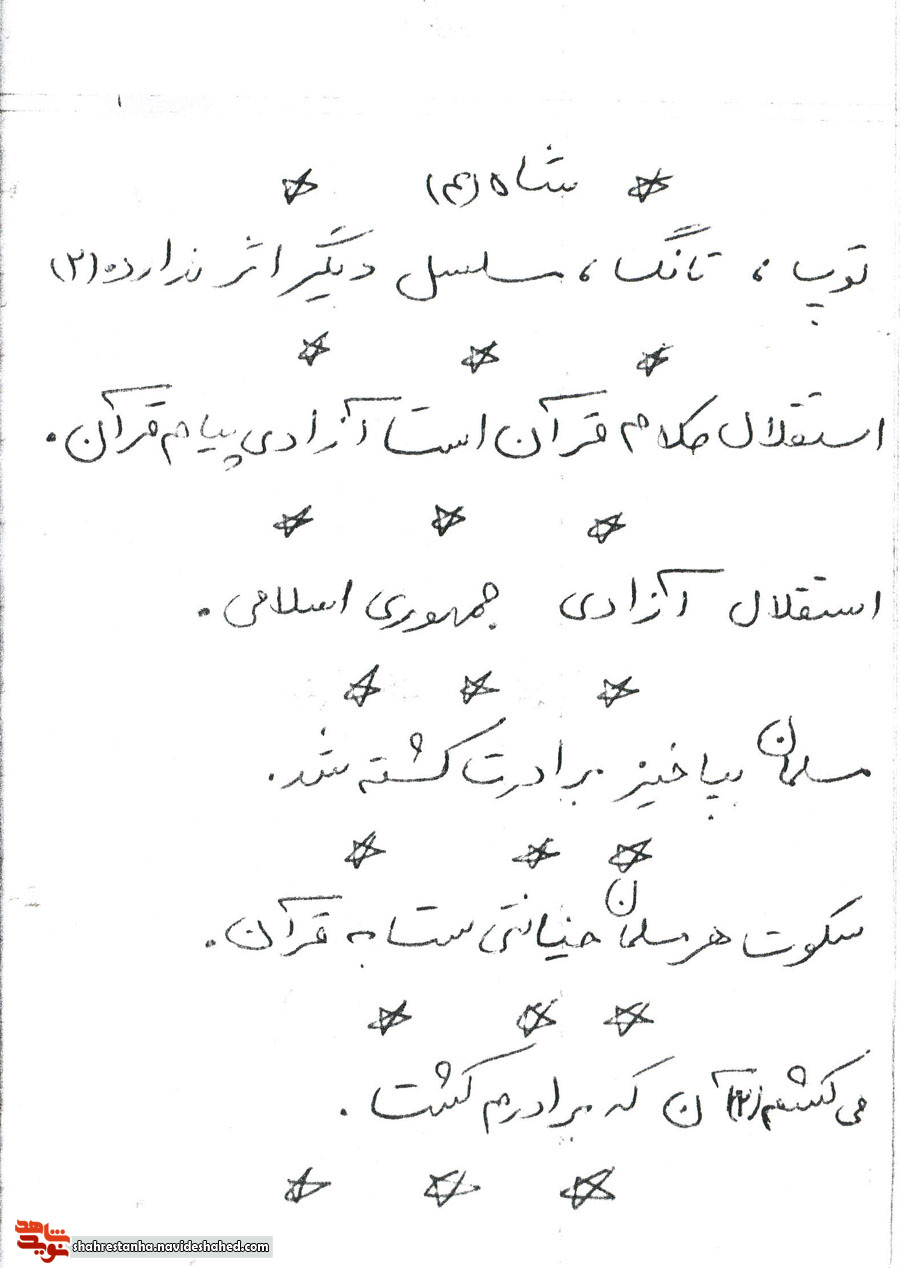 شاه (۴)
توپ، تانک، مسلسل دیگر اثر ندارد. (۲)
استقلال کلام قرآن است آزادی پیام قرآن.
استقلال آزادی جمهوری اسلامی.
مسلمان بپاخیز برادرت کشته شد.
سکوت هر مسلمان خیانتی ست به قرآن.
می کشم (۲) آن که برادرم کشت.
نوید شاهد
shahrestanha.navideshahed.com